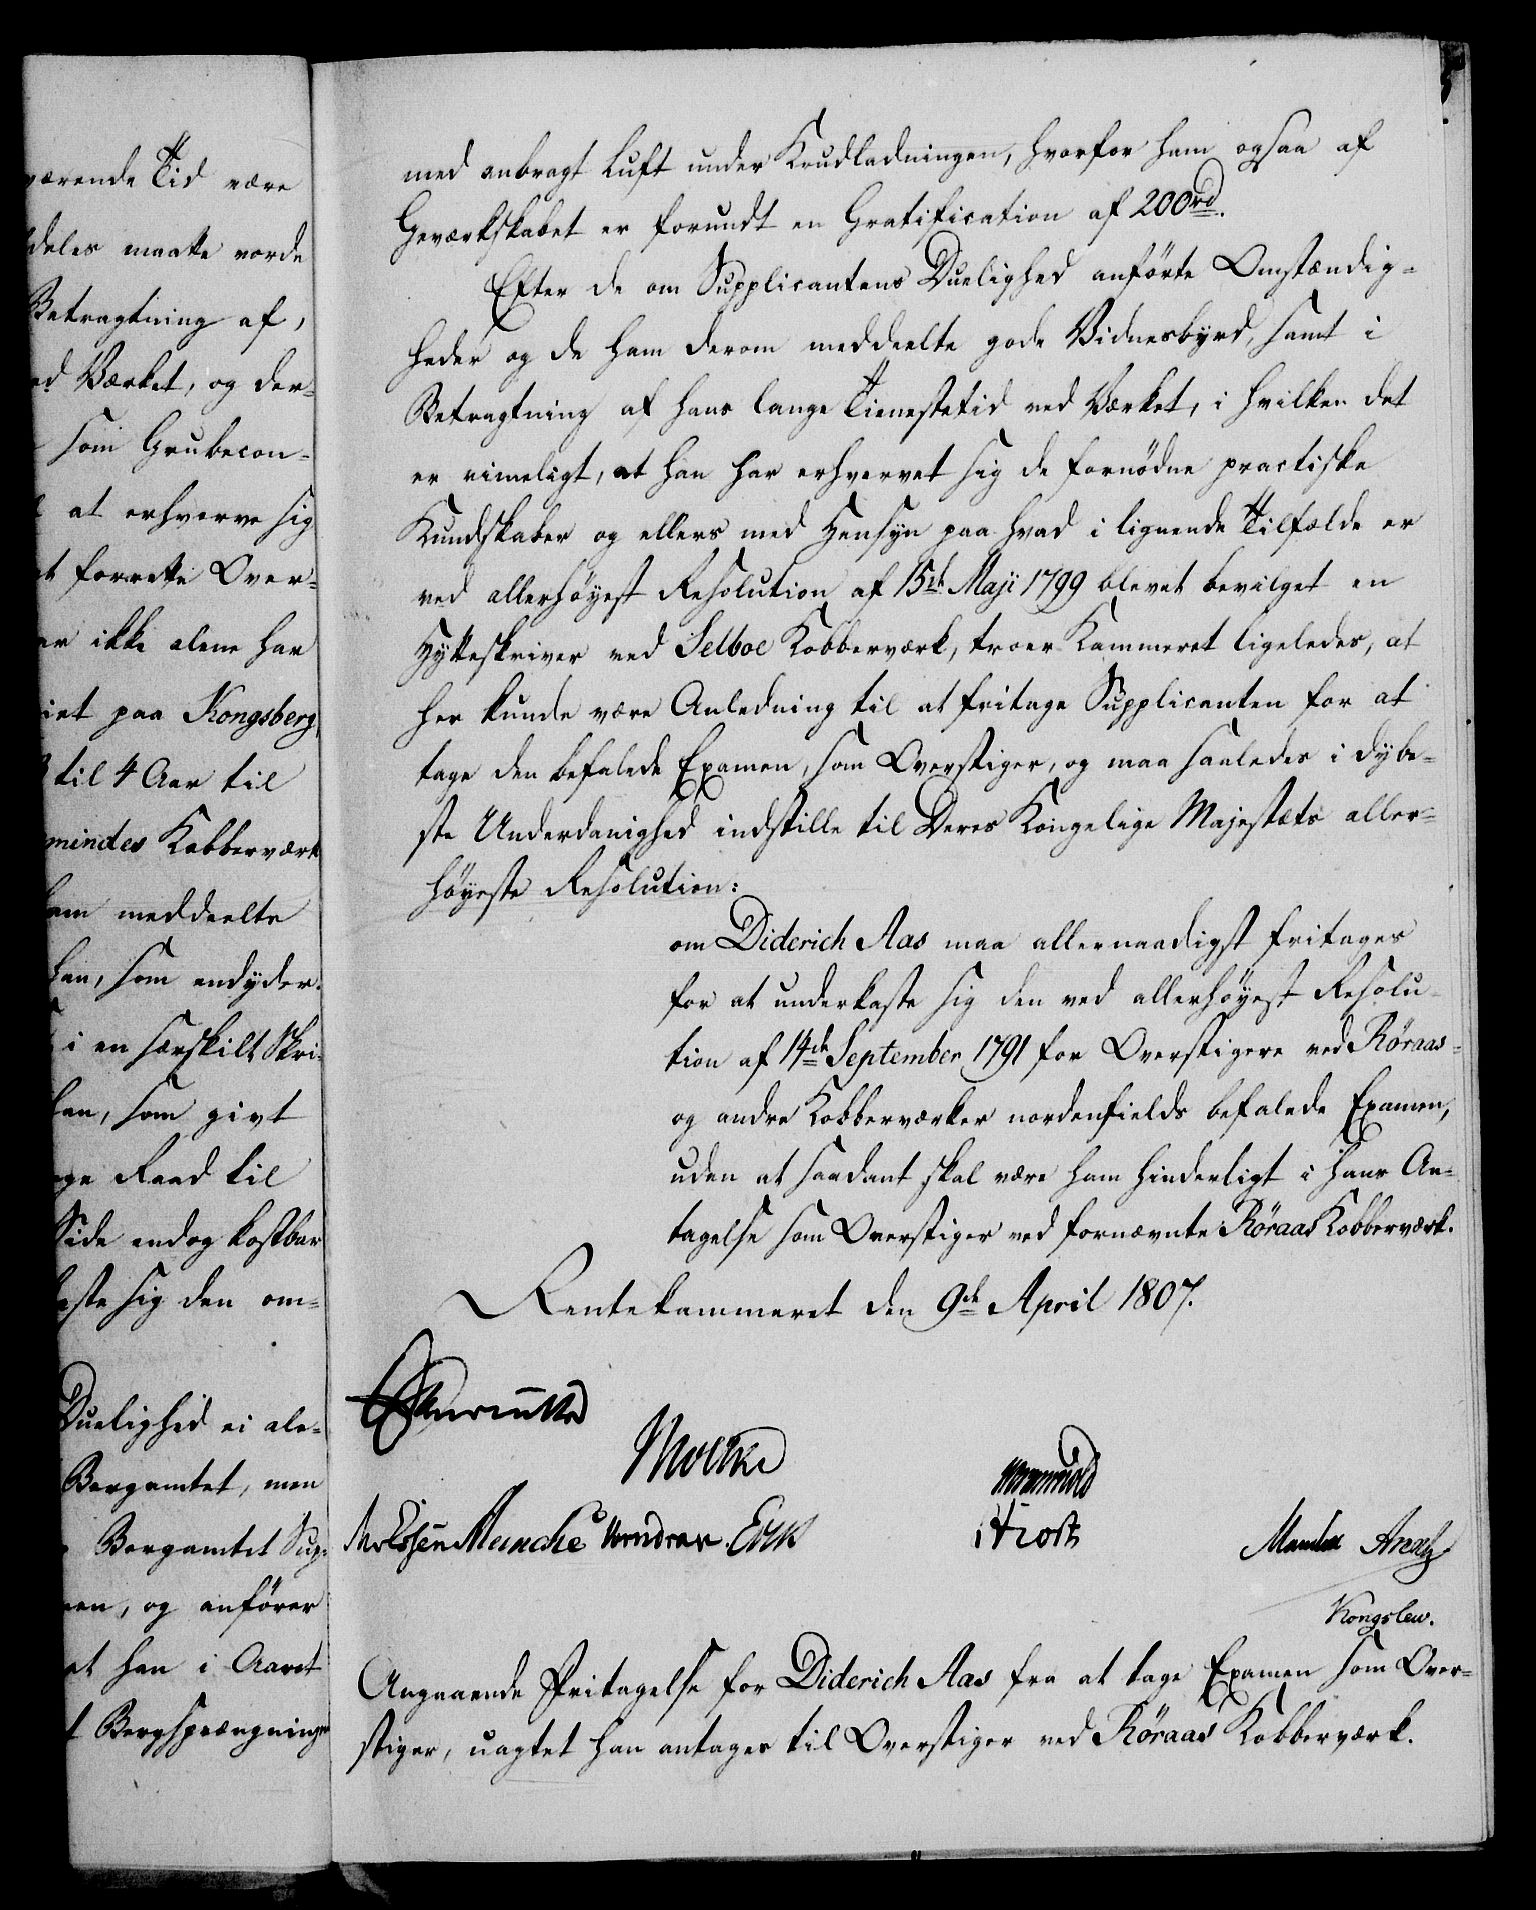 værende Tid være
deles maatte vorde
Betragtning af,
ved Værket, og der-
som Grubecon-
at erhverve sig
at forrette Over-
er ikke alene har
iet paa Kongsberg
til 4 Aar til
mindes Kobberværk
ham meddeelte
han, som endyder.
i en særskilt Skri-
han, som givt
Raad til
Side endog kostbar
kaste sig den om-
Duelighed ei ale-
Bergamtet, men
Bergamtet Sup-
men, og anfører
at han i Aaret
t Bergsprængninger
med anbragt Luft under Krudladningen, hvorfor ham ogsaa af
Geværkskabet er forundt en Gratification af 200rd.
Efter de om Supplicantens Duelighed anførte Omstændig-
heder og de ham derom meddeelte gode Vidnesbyrd, samt i
Betragtning af hans lange Tienestetid ved Værket, i hvilken det
er rimeligt, at han har erhvervet sig de fornødne practiske
Kundskaber og ellers med Hensyn paa hvad i lignende Tilfælde er
ved allerhøyest Resolution af 15de Maji 1799 blevet bevilget en
Hytteskriver ved Selboe Kobberværk, troer Kammeret ligeledes, at
her kunde være Anledning til at fritage Supplicanten for at
tage den befalede Examen, som Overstiger, og maa saaledes i dybe-
ste Underdanighed indstille til Deres Kongelige Majestæts aller-
høyeste Resolution:
om Diderich Aas maa allernaadigst fritages
for at underkaste sig den ved allerhøyest Resolu-
tion af 14de September 1791 for Overstigere ved Röraas-
og andre Kobberværker nordenfields befalede Examen,
uden at saadant skal være ham hinderligt i hans An-
tagelse som Overstiger ved fornævnte Röraas Kobberværk.
Rentekammeret den 9de April 1807.
Moltke
Wormskiold
Meinche Vendrar
Höst
Kongslew.
Angaaende Fritagelse for Diderich Aas fra at tage Examen som Over-
stiger, uagtet han antages til Overstiger ved Röraas Kobberværk.